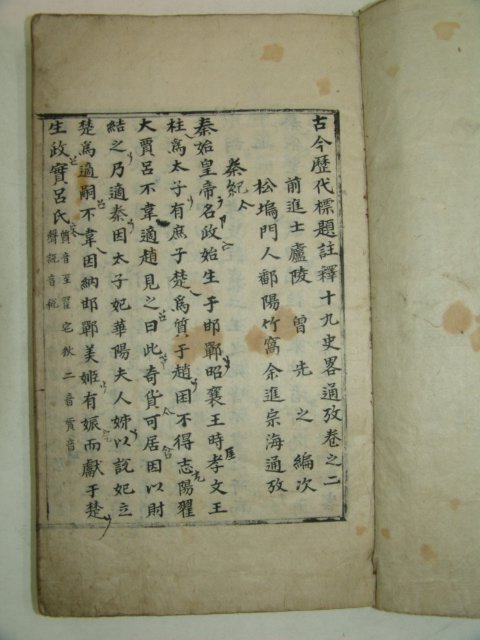 古今歷代標題註釋十九史畧通攷卷之二
前進士廬陵 曾 先之 編次
松塢門人鄱陽竹窩余進宗海通攷
秦紀
秦始皇帝名政始生于邯鄲昭襄王時孝文王
柱爲太子有庶子楚爲質于趙困不得志陽翟
大賈呂不韋適趙見之曰此奇貨可居因以財
結之乃適秦因太子妃華陽夫人姊以說妃立
楚爲適嗣不韋因納邯鄲美姬有娠而獻于楚
生政實呂氏
質音至翟宅狄二音賈音